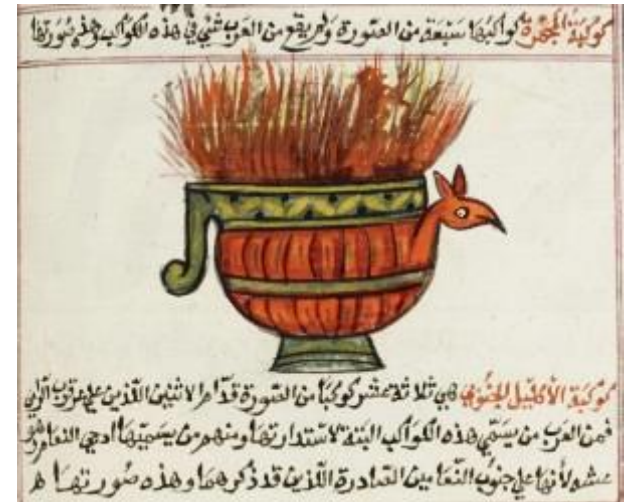 كوكبة المجمرة كواكبها سبعة من الصورة ولم يقع من العرب شئ في هذه الكواكب وهذه صورتها
كوكبة الاكليل الجنوبي هي ثلاثة عشر كوكبا من الصورة قدام الاثنين اللذين على عرقوب الرامي
فمن العرب من يسمي هذه الكواكب القبة لاستدارتها ومنهم من يسميها ادحي النعام وهو
عشه لأنها على جنوب النعامين الصادرة اللذين قد ذكرهما وهذه صورتها